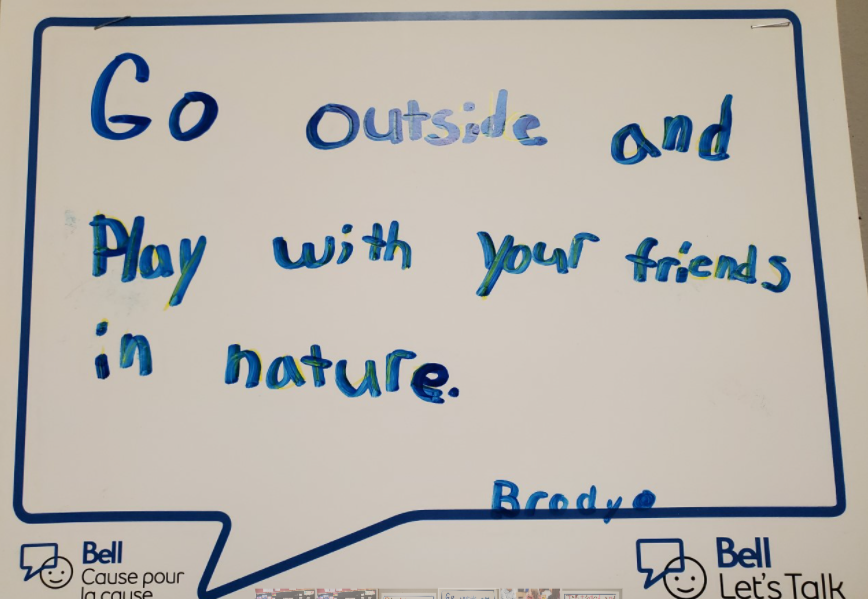 Go outside and
Play with your friends
in nature.
Brody
Bell
Cause pour
la cause
Bell
Let's Talk